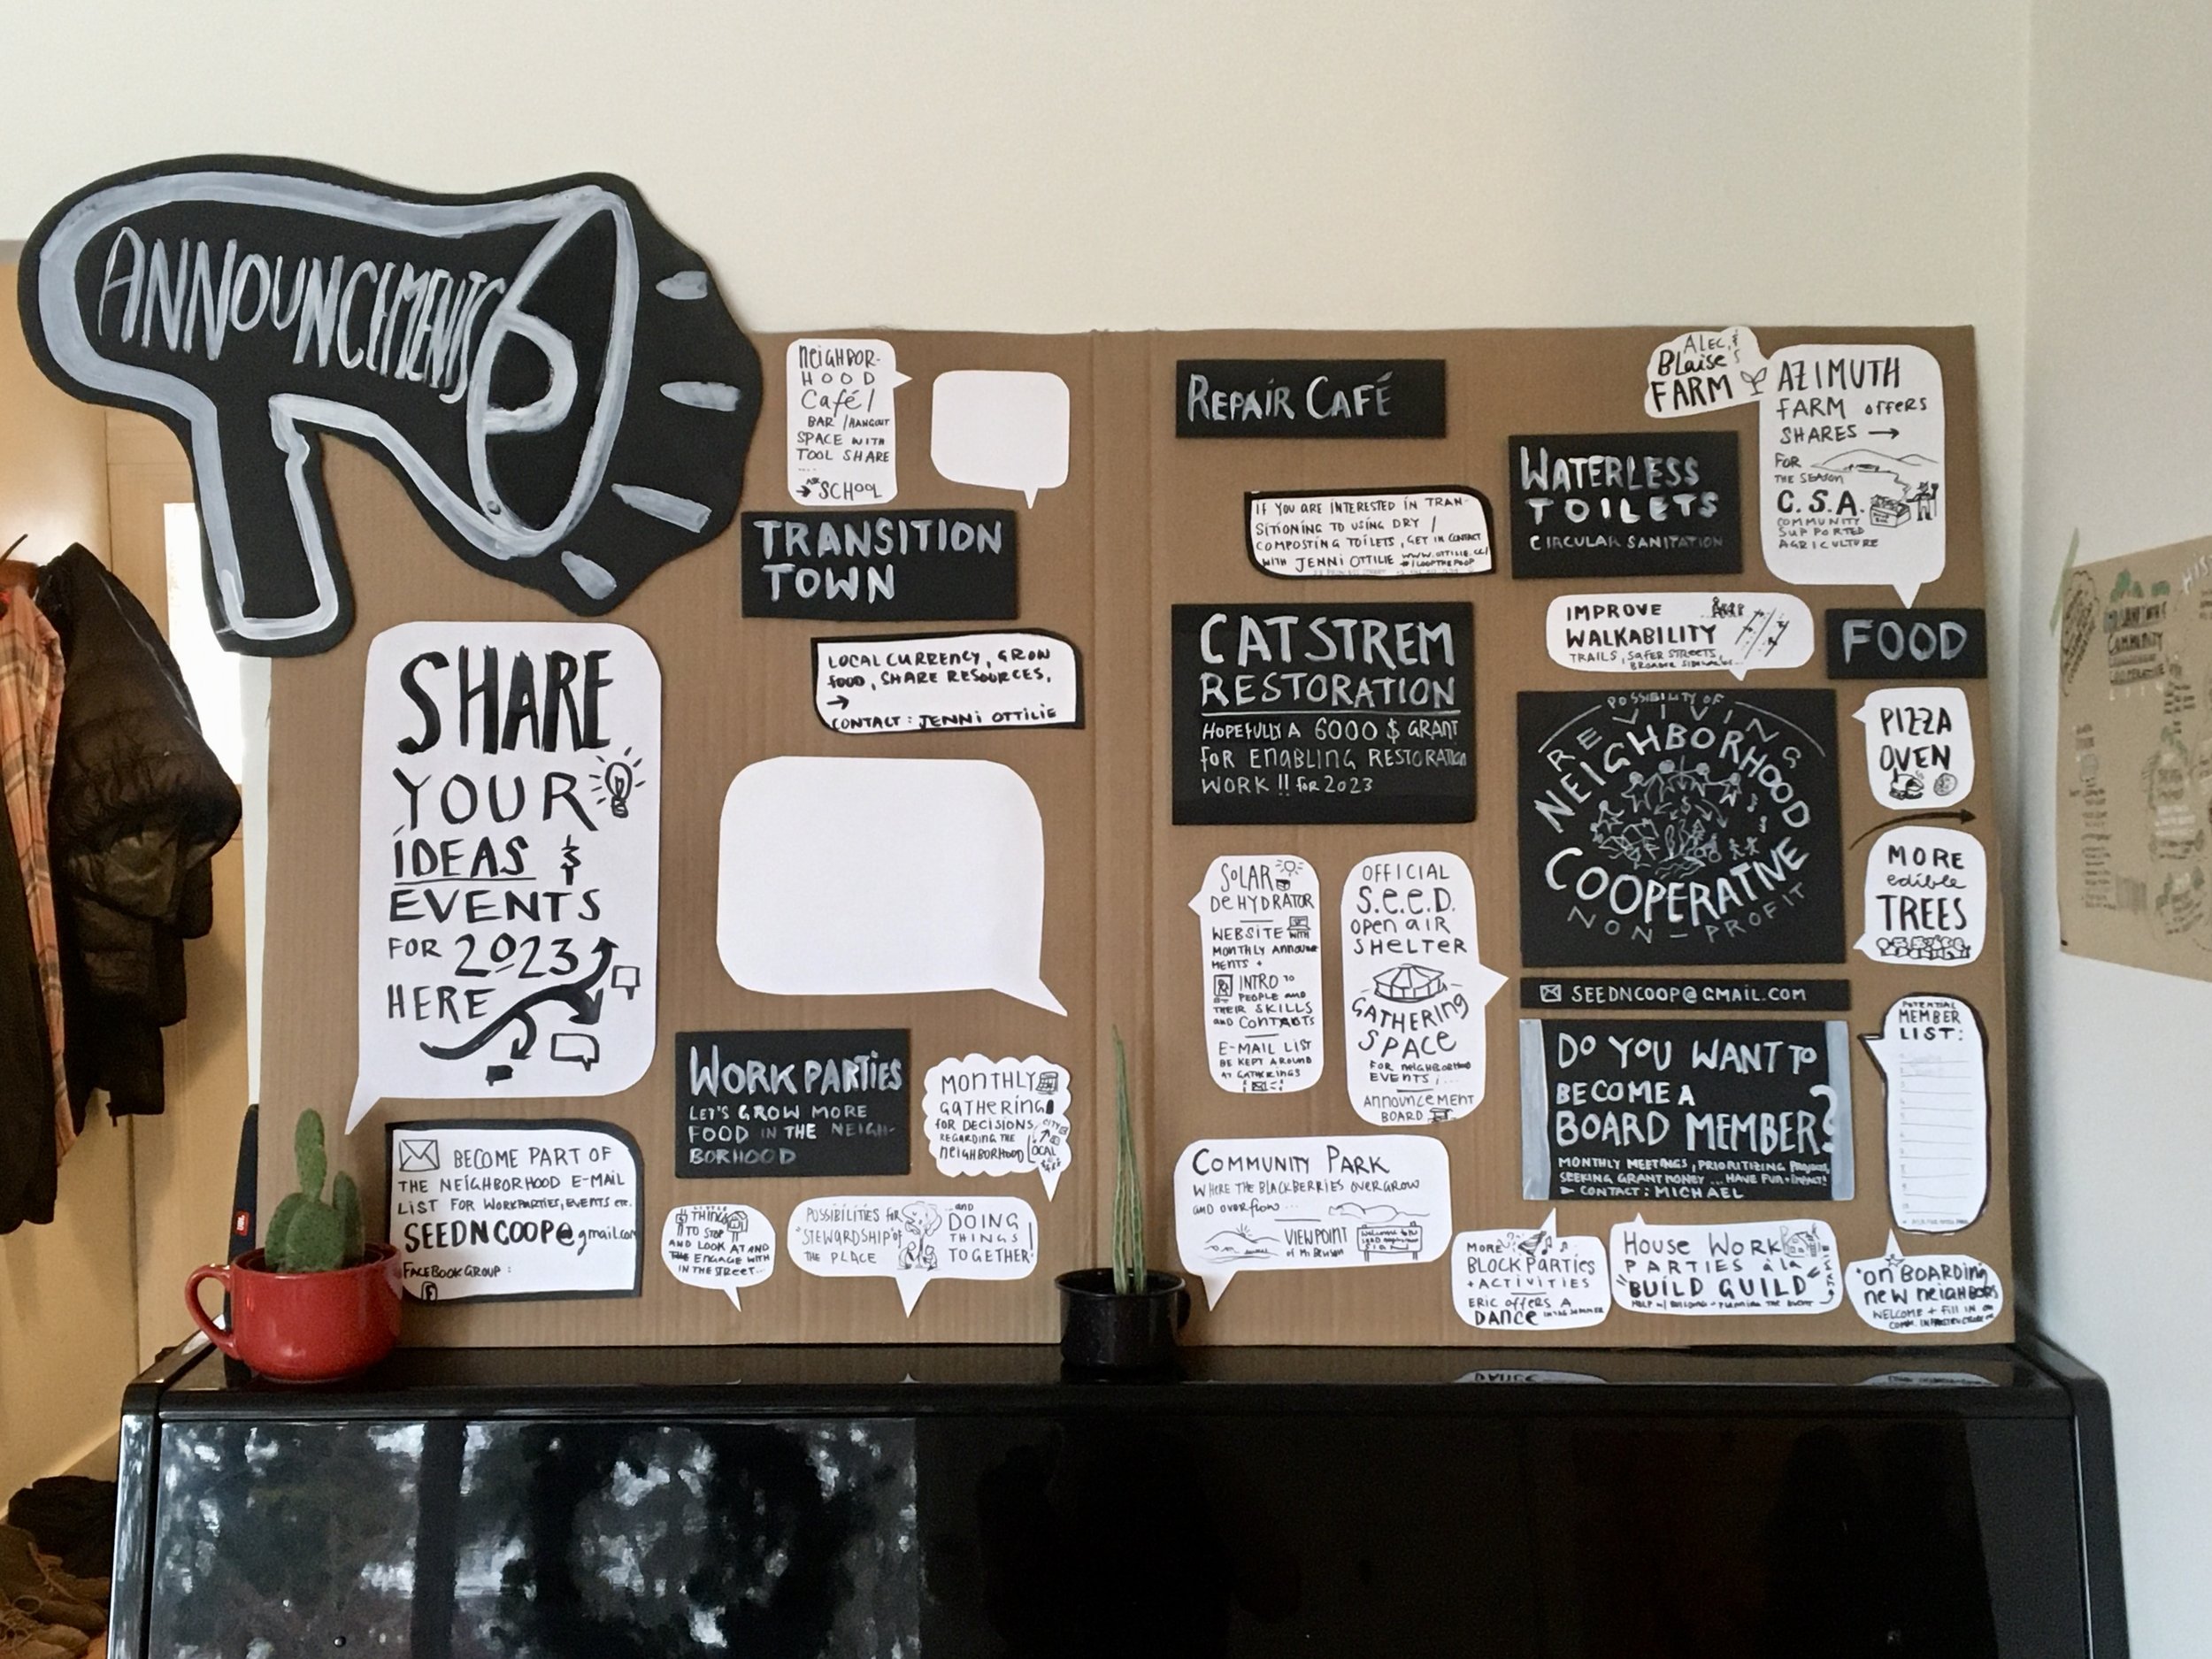 ANNOUNCEMENTS
SHARE
YOUR
IDEAS &
EVENTS
FOR 2023
HERE
BECOME PART OF
THE NEIGHBORHOOD E-MAIL
LIST FOR WORKPARTIES, EVENTS etc.
SEEDNCOOP@gmail.com
FACEBOOK GROUP:
NEIGHBOR-
HOOD
Café /
BAR / HANGOUT
SPACE WITH
TOOL SHARE
....
→ SCHOOL
TRANSITION
TOWN
LOCAL CURRENCY, GROW
FOOD, SHARE RESOURCES,
→
CONTACT: JENNI OTTILIE
WORK PARTIES
LET'S GROW MORE
FOOD IN THE NEIGH-
BORHOOD
MONTHLY
GATHERING
FOR DECISIONS
REGARDING THE
NEIGHBORHOOD
LOCAL
THINGS
TO STOP
AND LOOK AT AND
ENGAGE WITH
IN THE STREET...
POSSIBILITIES FOR
"STEWARDSHIP" OF
THE PLACE
...and
DOING
THINGS
TOGETHER!
REPAIR CAFÉ
IF YOU ARE INTERESTED IN TRAN-
SITIONING TO USING DRY /
COMPOSTING TOILETS, GET IN CONTACT
WITH JENNI OTTILIE WWW.OTTILIE.CC/
#LOOPTHEPOOP
WATERLESS
TOILETS
CIRCULAR SANITATION
ALEC &
BLAISE'S
FARM
AZIMUTH
FARM OFFERS
SHARES →
FOR
THE SEASON
C.S.A.
COMMUNITY
SUPPORTED
AGRICULTURE
CATSTREM
RESTORATION
HOPEFULLY A 6000 $ GRANT
FOR ENABLING RESTORATION
WORK !! FOR 2023
IMPROVE
WALKABILITY
TRAILS, SAFER STREETS,
BROADER SIDEWALKS...
FOOD
POSSIBILITY OF
REVIVING
NEIGHBORHOOD
COOPERATIVE
NON-PROFIT
PIZZA
OVEN
MORE
edible
TREES
SEEDNCOOP@GMAIL.COM
SOLAR
DEHYDRATOR
WEBSITE WITH
MONTHLY ANNOUNCE
MENTS +
INTRO TO
PEOPLE AND
THEIR SKILLS
and CONTACTS
E-MAIL LIST
BE KEPT AROUND
AT GATHERINGS
OFFICIAL
S.E.E.D.
OPEN AIR
SHELTER
GATHERING
SPACE
FOR NEIGHBORHOOD
EVENTS, ...
ANNOUNCEMENT
BOARD
DO YOU WANT TO
BECOME A
BOARD MEMBER?
MONTHLY MEETINGS, PRIORITIZING PROJECTS,
SEEKING GRANT MONEY ... HAVE FUN + IMPACT!
CONTACT: MICHAEL
POTENTIAL
MEMBER
LIST:
COMMUNITY PARK
WHERE THE BLACKBERRIES OVERGROW
AND OVERFLOW...
VIEWPOINT
MORE
BLOCK PARTIES
+ ACTIVITIES
ERIC OFFERS A
DANCE IN THE SUMMER
HOUSE WORK
PARTIES à la
"BUILD GUILD"
HELP W/ BUILDING + PLANNING THE EVENT
"ON BOARDING
NEW NEIGHBORS
WELCOME + FILL IN ON
COMM. INFRASTRUCTURE